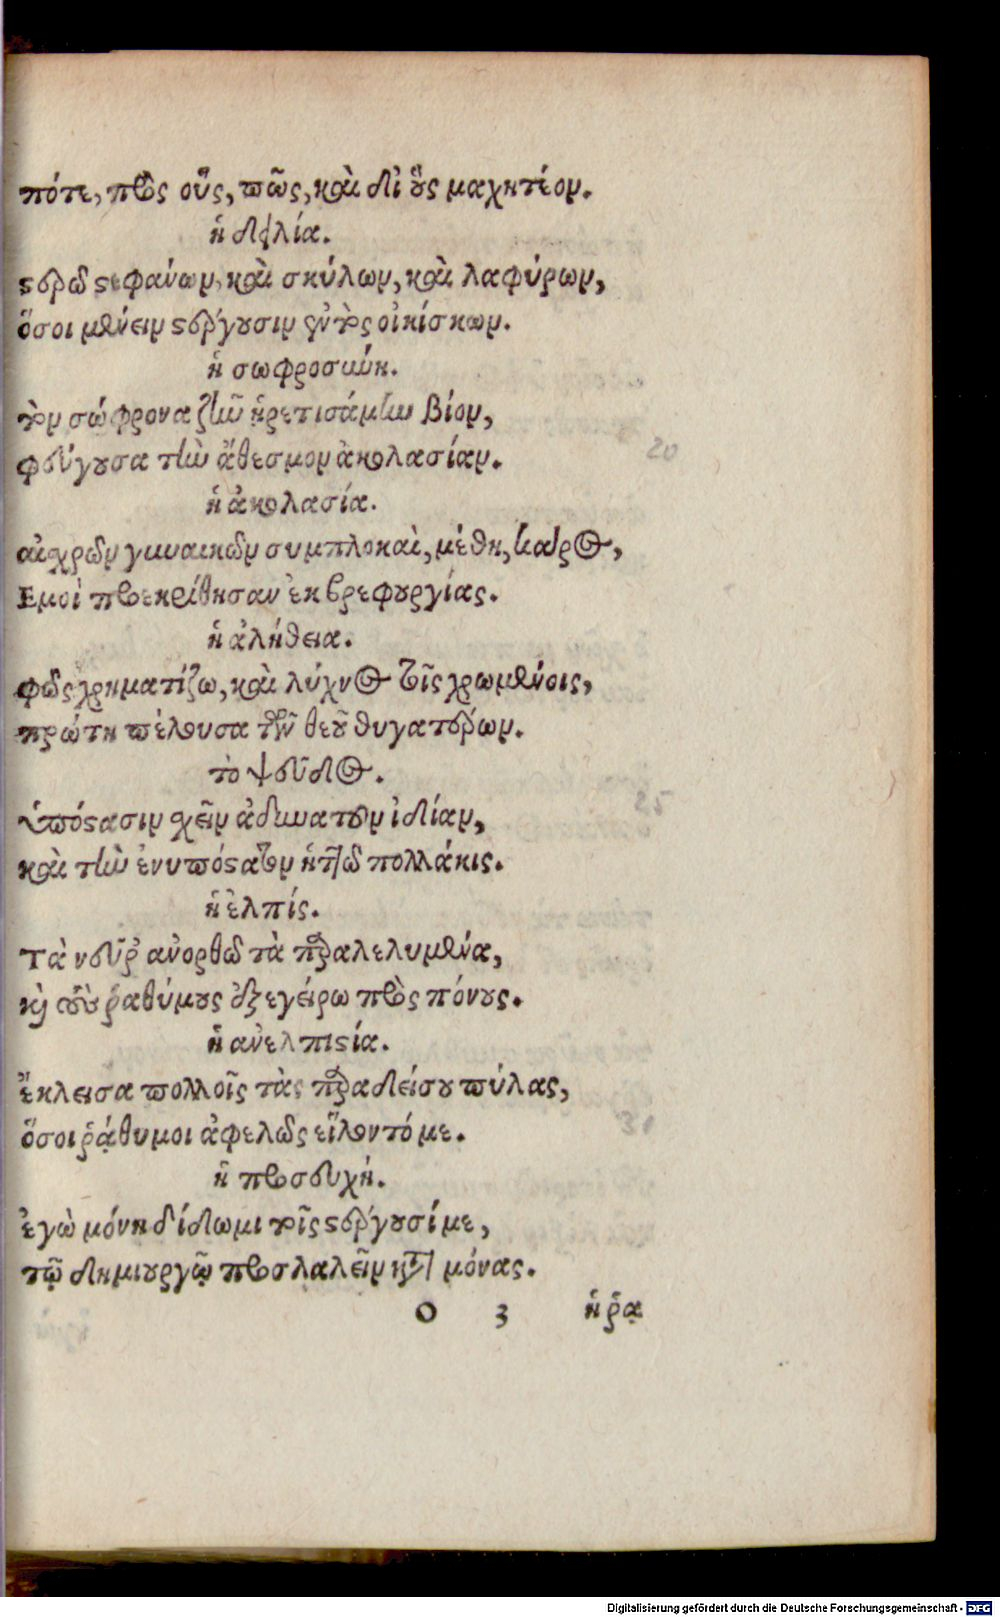 πότε, πρὸς οὓς, πῶς, καὶ δι' οὓς μαχητέον.
ἡ δειλία.
στερῶ στεφάνων, καὶ σκύλων, καὶ λαφύρων,
ὅσοι μένειν στέργουσιν ἐντὸς οἰκίσκων.
ἡ σωφροσύνη.
τὸν σώφρονα ζῆν ᾑρετισάμην βίον,
φεύγουσα τὴν ἄθεσμον ἀκολασίαν.
ἡ ἀκολασία.
αἰσχρῶν γυναικῶν συμπλοκαὶ, μέθη,
Εμοὶ προεκρίθησαν ἐκ βρεφουργίας.
ἡ ἀλήθεια.
φῶς χρηματίζω, καὶ λύχνος τοῖς χρωμένοις,
πρώτη πέλουσα τῶν θεοῦ θυγατέρων.
τὸ ψεῦδος.
ὑπόστασιν ἔχειν ἀδυνατοῦν ἰδίαν,
καὶ τὴν ἐνυπόστατον ἡττῶ πολλάκις.
ἡ ἐλπίς.
Τὰ νεῦρ' ἀνορθῶ τὰ παραλελυμένα,
καὶ τοὺς ῥαθύμους ἐξεγείρω πρὸς πόνους.
ἡ ἀνελπιστία.
ἔκλεισα πολλοῖς τὰς παραδείσου πύλας,
ὅσοι ῥᾴθυμοι ἀφελῶς εἵλοντό με.
ἡ προσευχή.
ἐγὼ μόνη δίδωμι τοῖς στέργουσί με,
τῷ δημιουργῷ προσλαλεῖν κατὰ μόνας.
O 3 ἡ ῥᾳ
20
25
30
Digitalisierung gefördert durch die Deutsche Forschungsgemeinschaft - DFG